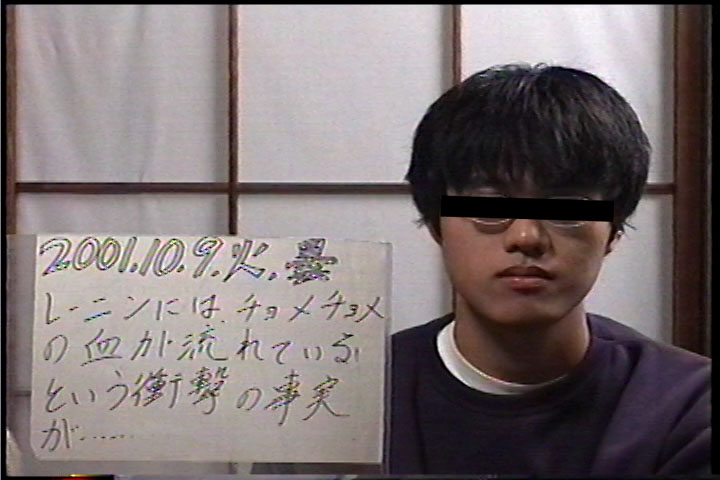 2001.10.9.火.曇
レーニンには、チョメチョメ
の血が流れている
という衝撃の事実
が……